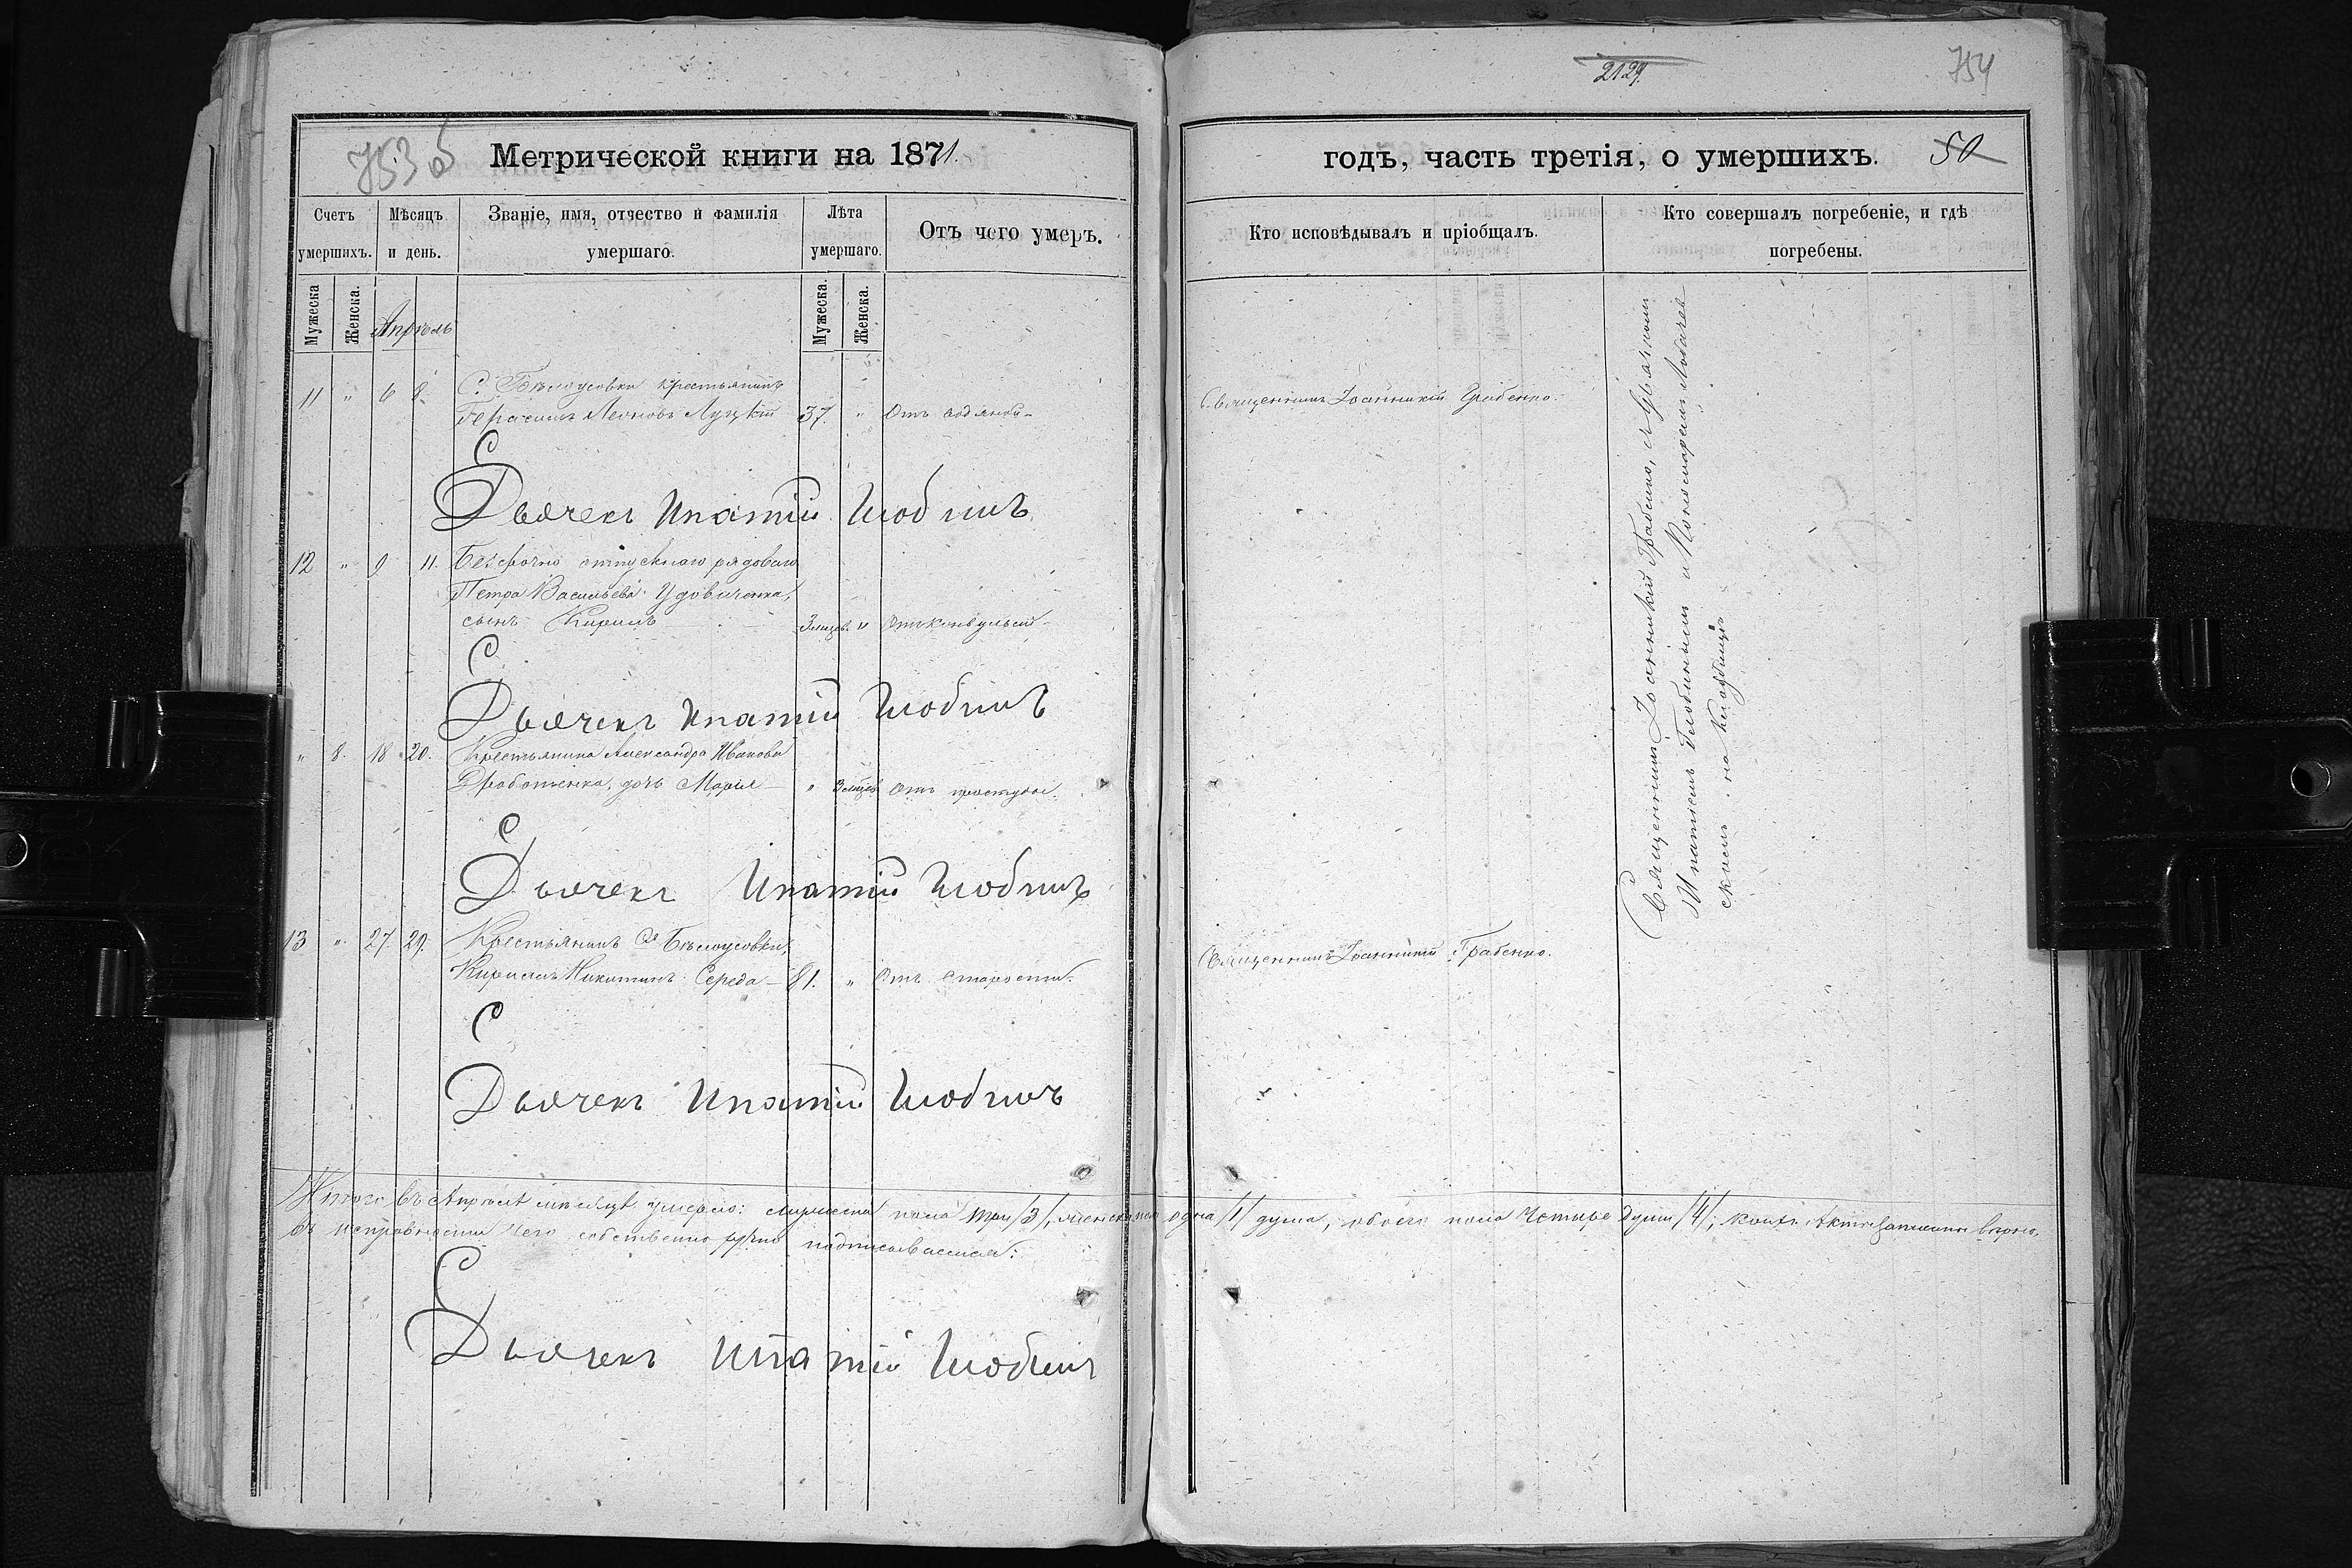 2129
754
753 б
Метрической книги на 1871.
годъ, часть третія, о умершихъ.
50
Счетъ умершихъ.
Мѣсяцъ и день.
Званіе, имя, отчество и фамилія умершаго.
Лѣта умершаго.
Отъ чего умеръ.
Кто исповѣдывалъ и пріобщалъ.
Кто совершалъ погребеніе, и гдѣ погребены.
Мужеска
Женска.
Апрѣль
Мужеска.
Женска.
11 " 6 8. С. Бѣлоусовки крестьянинъ
Герасимъ Леоновъ Луцкій 37. " Отъ водяной
Священникъ Іоанникій Грабенко.
С
Дьячекъ Ипатій Глобинъ
12 " 9 11. Безсрочно отпускнаго рядоваго
Петра Васильева Удовиченка,
сынъ Кирилъ 3 мцев. " Отъ конвульсій
С
Дьячекъ Ипатій Глобинъ
" 8. 18 20. Крестьянина Александра Иванова
Дроботенка, дочь Марія " мцев Отъ простуды.
С
Дьячекъ Ипатій Глобинъ
13 " 27. 29. Крестьянинъ С. Бѣлоусовки,
Кириллъ Никитинъ Середа 81. " Отъ старости.
Священникъ Іоанникій Грабенко.
С
Дьячекъ Ипатій Глобинъ
Священникъ Іоанникій Грабенко, съ Дьячкомъ
Ипатіемъ Глобинымъ и Пономаремъ
на кладбищѣ
Итого въ Апрѣлѣ мѣсяцѣ умерло: мужеска пола три /3/, женска одна /1/ душа, обоего пола четыре души /4/, акты записаны вѣрно,
въ чего собственно ручно подписываемся:
С
Дьячекъ Ипатій Глобинъ